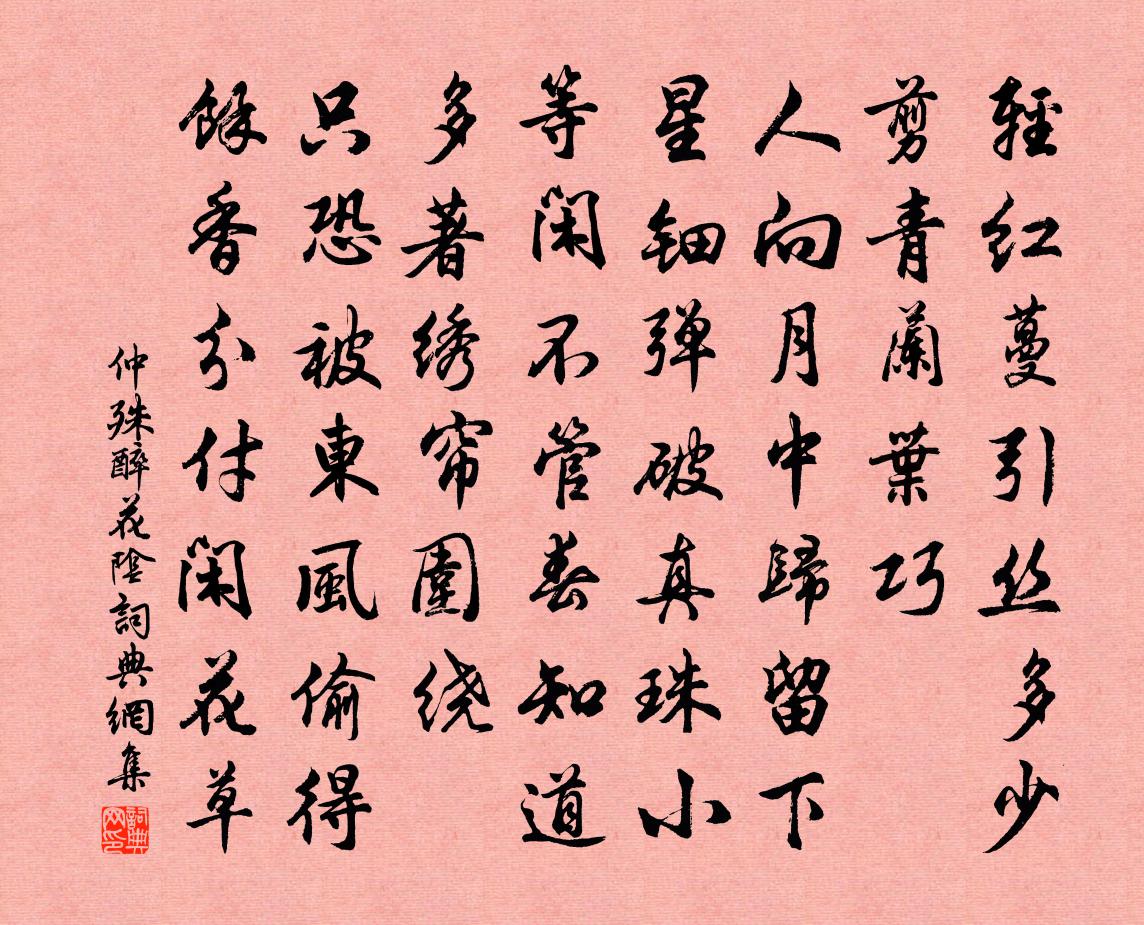 輕红蔓引丝多少
剪青蘭葉巧
人向月中歸留下
星钿弹破真珠小
等闲不管春知道
多著绣帘圍绕
只恐被東風偷得
餘香分付闲花草
仲殊醉花陰詞典網集
詞典网印